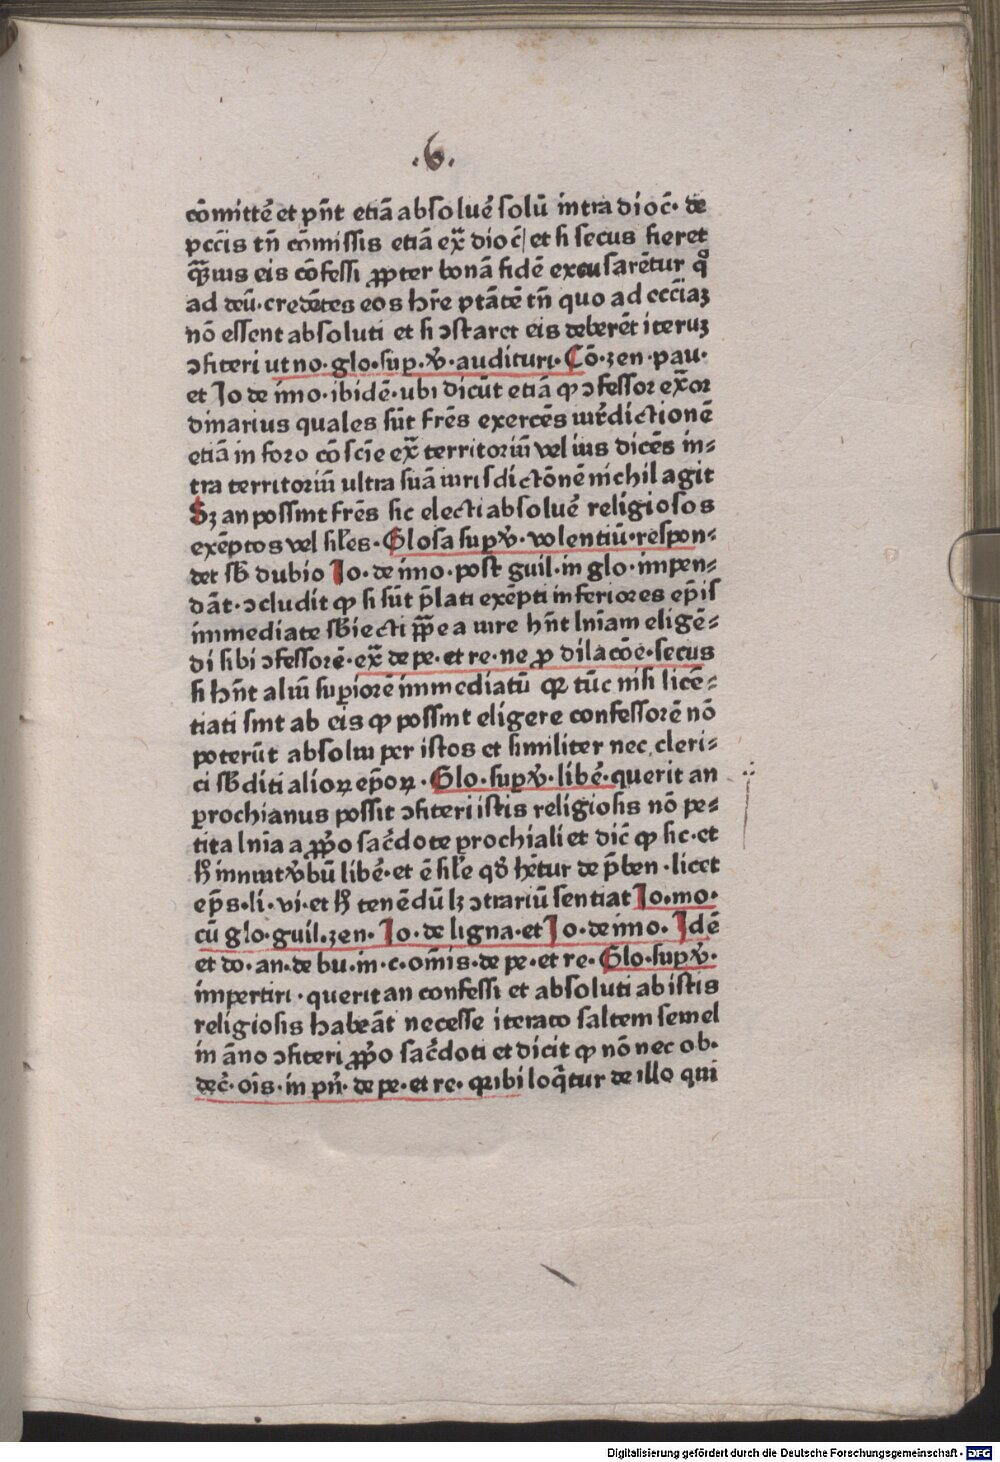 .6.
cōmittē et pn̄t etiā absoluē solū intra dioc̄· de
pcc̄is tn̄ cōmissis etiā ex̄ dioc̄/ et si secus fieret
q̄uis eis cōfessi ꝓpter bonā fidē excusarētur qͦ
ad deū·credētes eos hr̄e ptātē tn̄ quo ad ecc̄iaꝫ
nō essent absoluti et si ɔstaret eis deberēt iteruꝫ
ɔfiteri ut no·glo·suꝑ·v̄·audituri·Cō·zen·pau·
et Jo de īmo·ibidē·ubi dicūt etiā ꝙ ɔfessor ex̄or
dinarius quales sūt frēs exercēs iur̄dictionē
etiā in foro cōsciē ex̄ territoriū vel ius dicēs in⸗
tra territoriū ultra suā iurisdictōnē nichil agit
Sꝫ an possint frēs sic electi absoluē religiosos
exēptos vel sil̄es·Glosa suꝑ v̄·volentiū·respon⸗
det sb̄ dubio Jo·de īmo·post guil·in glo·impen⸗
dāt·ɔcludit ꝙ si sūt p̄lati exēpti inferiores ep̄is
immediate sb̄iecti p̄pe a iure hn̄t lniam eligē⸗
di sibi ɔfessorē·ex̄ de pe·et re·ne ꝓ dilacōe·secus
si hn̄t aliū suꝑiorē immediatū qꝛ tūc nisi licē⸗
tiati sint ab eis ꝙ possint eligere confessorē nō
poterūt absolui per istos et similiter nec cleri⸗
ci sb̄diti alioꝝ ep̄oꝝ·Glo·suꝑ v̄·libē·querit an
ꝑrochianus possit ɔfiteri istis religiosis nō pe⸗
tita lnīa a ꝓp̄o sac̄dote ꝑrochiali et dic̄ ꝙ sic·et
h̄ innuit v̄bū libē·et ē sil̄e qd̄ hētur de p̄ben·licet
ep̄s·li·vi·et h̄ tenēdū lꝫ ɔtrariū sentiat Jo.mo·
cū glo·guil.zen·Jo·de ligna·et Jo·de īmo·Jdē
et do·an·de bu·in·c·om̄is·de pe·et re·Glo·suꝑ v̄·
impertiri·querit an confessi et absoluti ab istis
religiosis habeāt necesse iterato saltem semel
in āno ɔfiteri ꝓp̄o sac̄doti et dicit ꝙ nō nec ob·
dec̄·oīs·in pn̄·de pe·et re·qꝛ ibi loq̄tur de illo qui
Digitalisierung gefördert durch die Deutsche Forschungsgemeinschaft - DFG